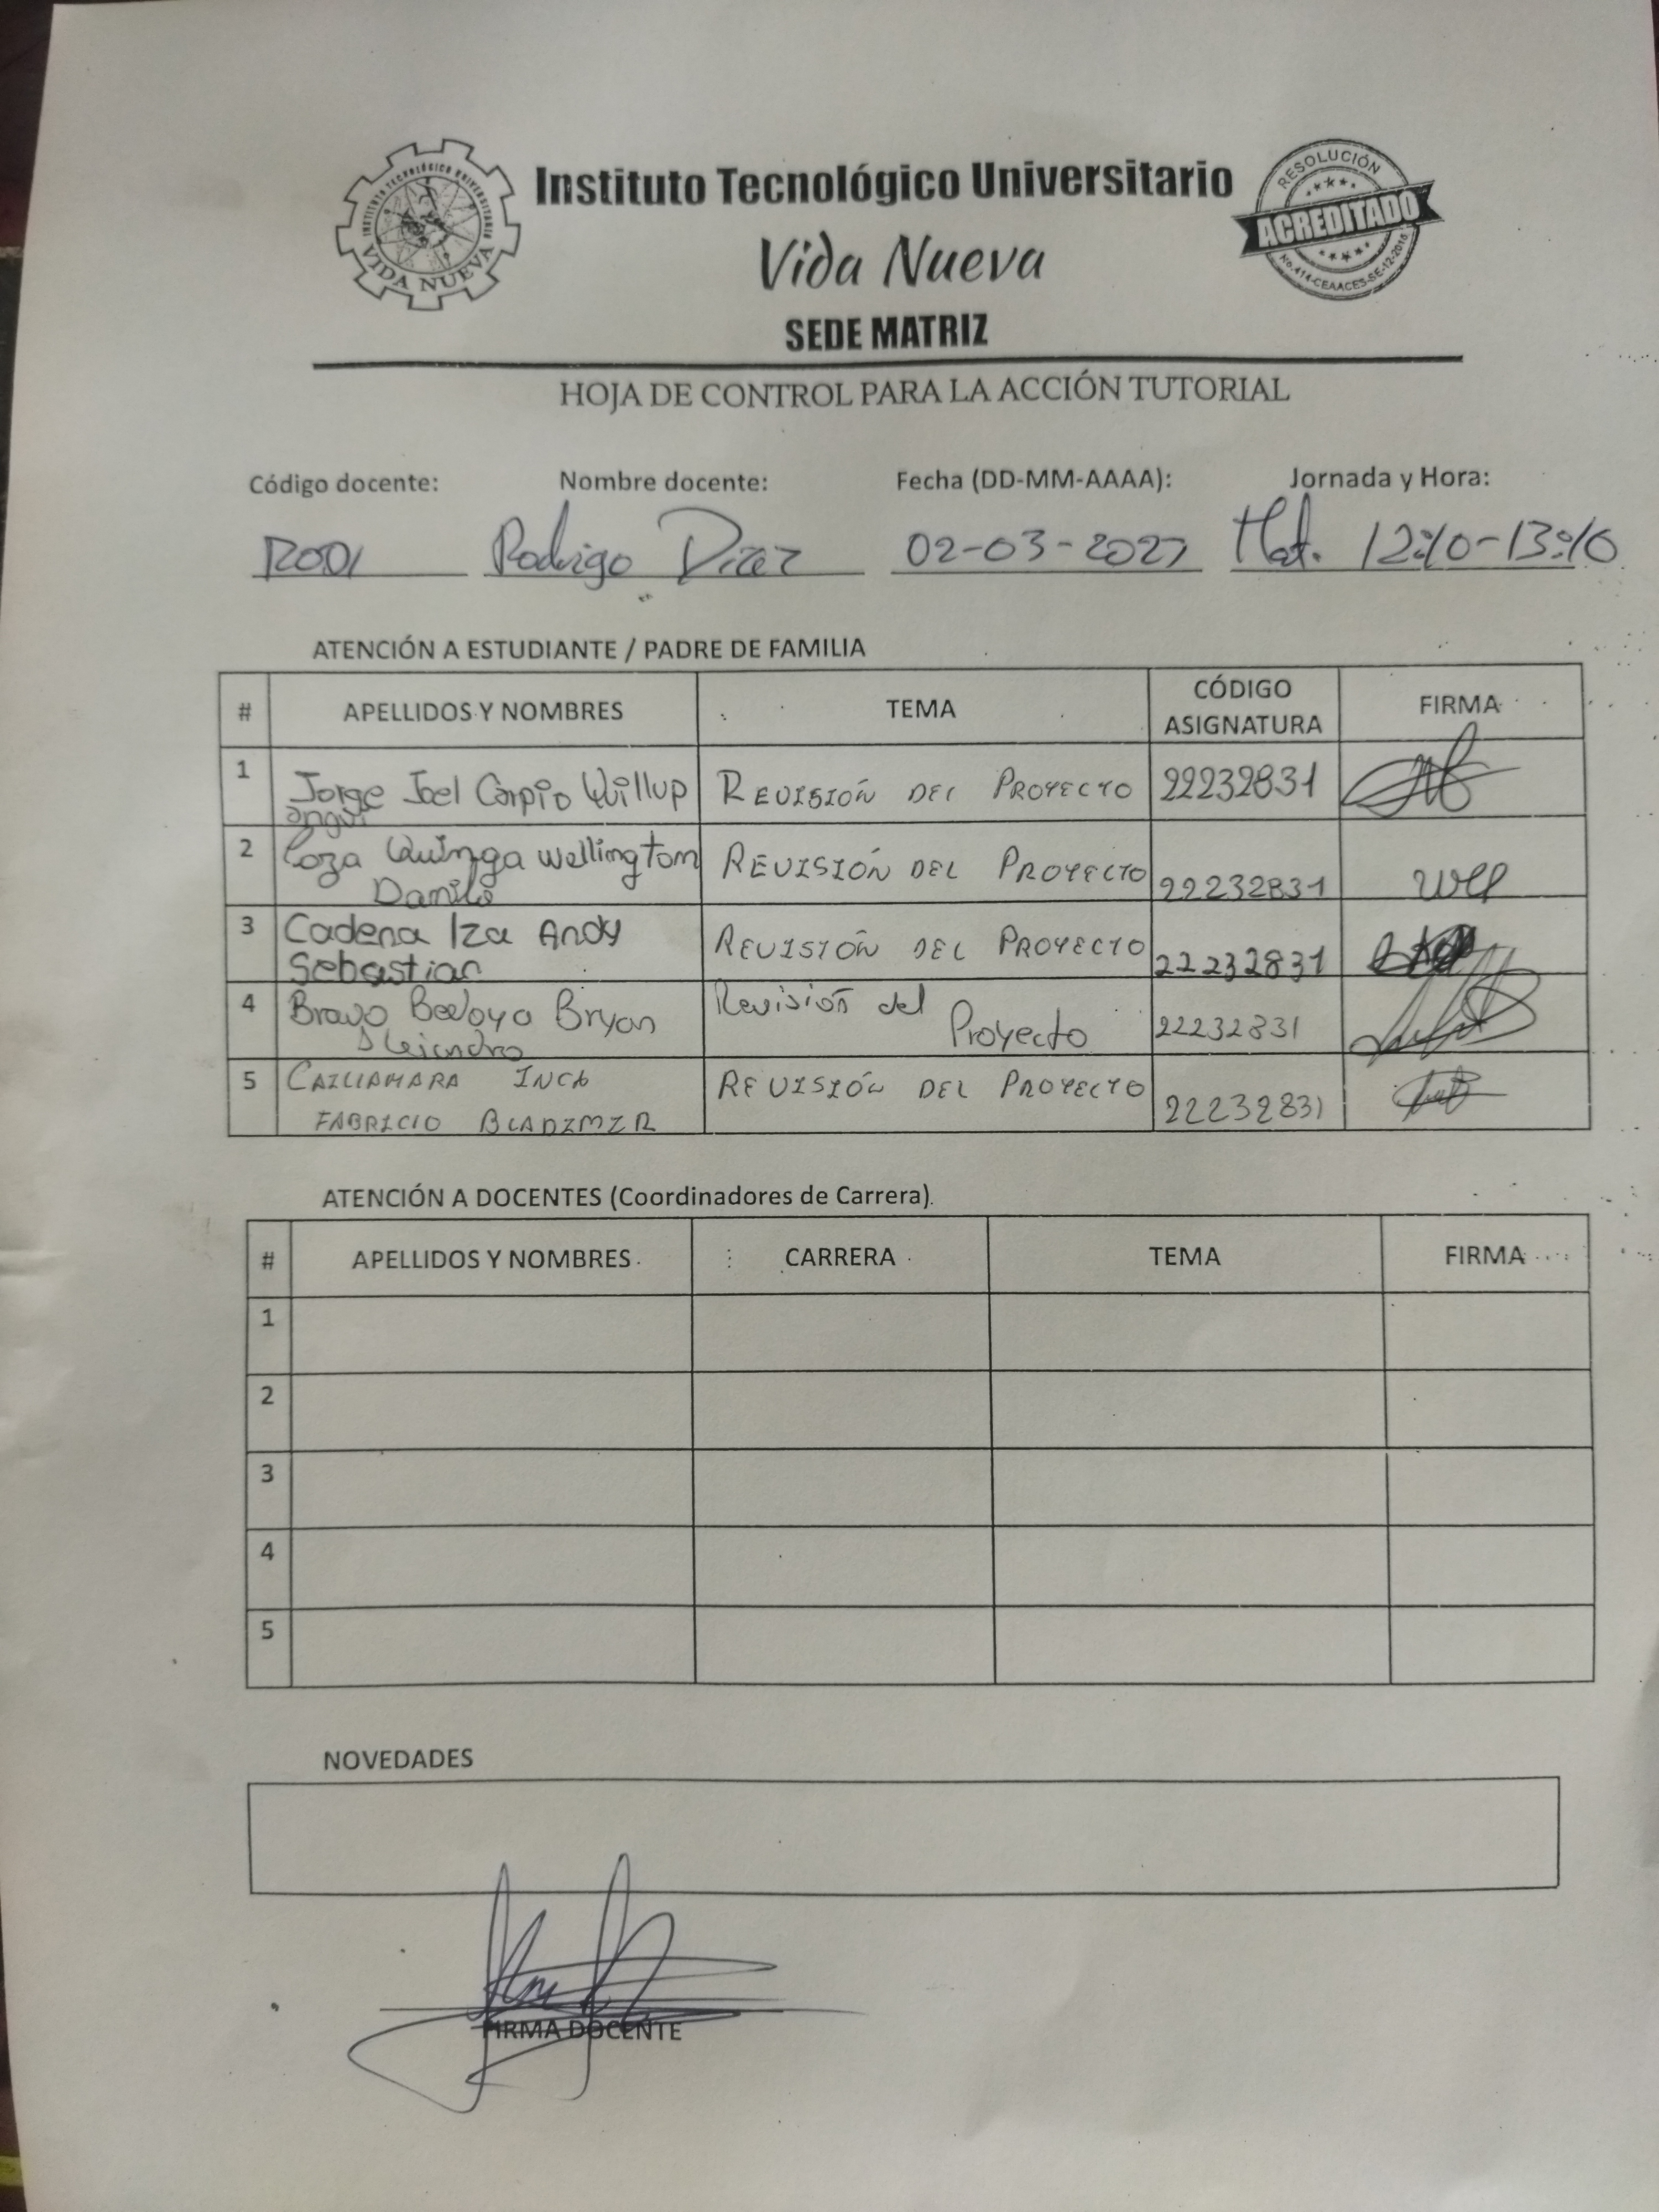 INSTITUTO TECNOLÓGICO UNIVERSITARIO
VIDA NUEVA
Instituto Tecnológico Universitario
Vida Nueva
SEDE MATRIZ
RESOLUCIÓN
ACREDITADO
No.414-CEAACES-SE-12-2016
HOJA DE CONTROL PARA LA ACCIÓN TUTORIAL
Código docente: Nombre docente: Fecha (DD-MM-AAAA): Jornada y Hora:
RODI Rodrigo Díaz 02-03-2023 Mat. 12:10-13:10
ATENCIÓN A ESTUDIANTE / PADRE DE FAMILIA
# APELLIDOS Y NOMBRES TEMA CÓDIGO ASIGNATURA FIRMA
1 Jorge Joel Carpio Quillup REVISIÓN DEL PROYECTO 22232831
angui
2 Loza Quinga Wellington REVISIÓN DEL PROYECTO 22232831
Danilo
3 Cadena Iza Andy REVISIÓN DEL PROYECTO 22232831
Sebastian
4 Bravo Bedoya Bryan Revisión del Proyecto 22232831
Alejandro
5 CAILLAMARA INCA REVISIÓN DEL PROYECTO 22232831
FABRICIO BLADIMIR
ATENCIÓN A DOCENTES (Coordinadores de Carrera).
# APELLIDOS Y NOMBRES CARRERA TEMA FIRMA
1
2
3
4
5
NOVEDADES
FIRMA DOCENTE